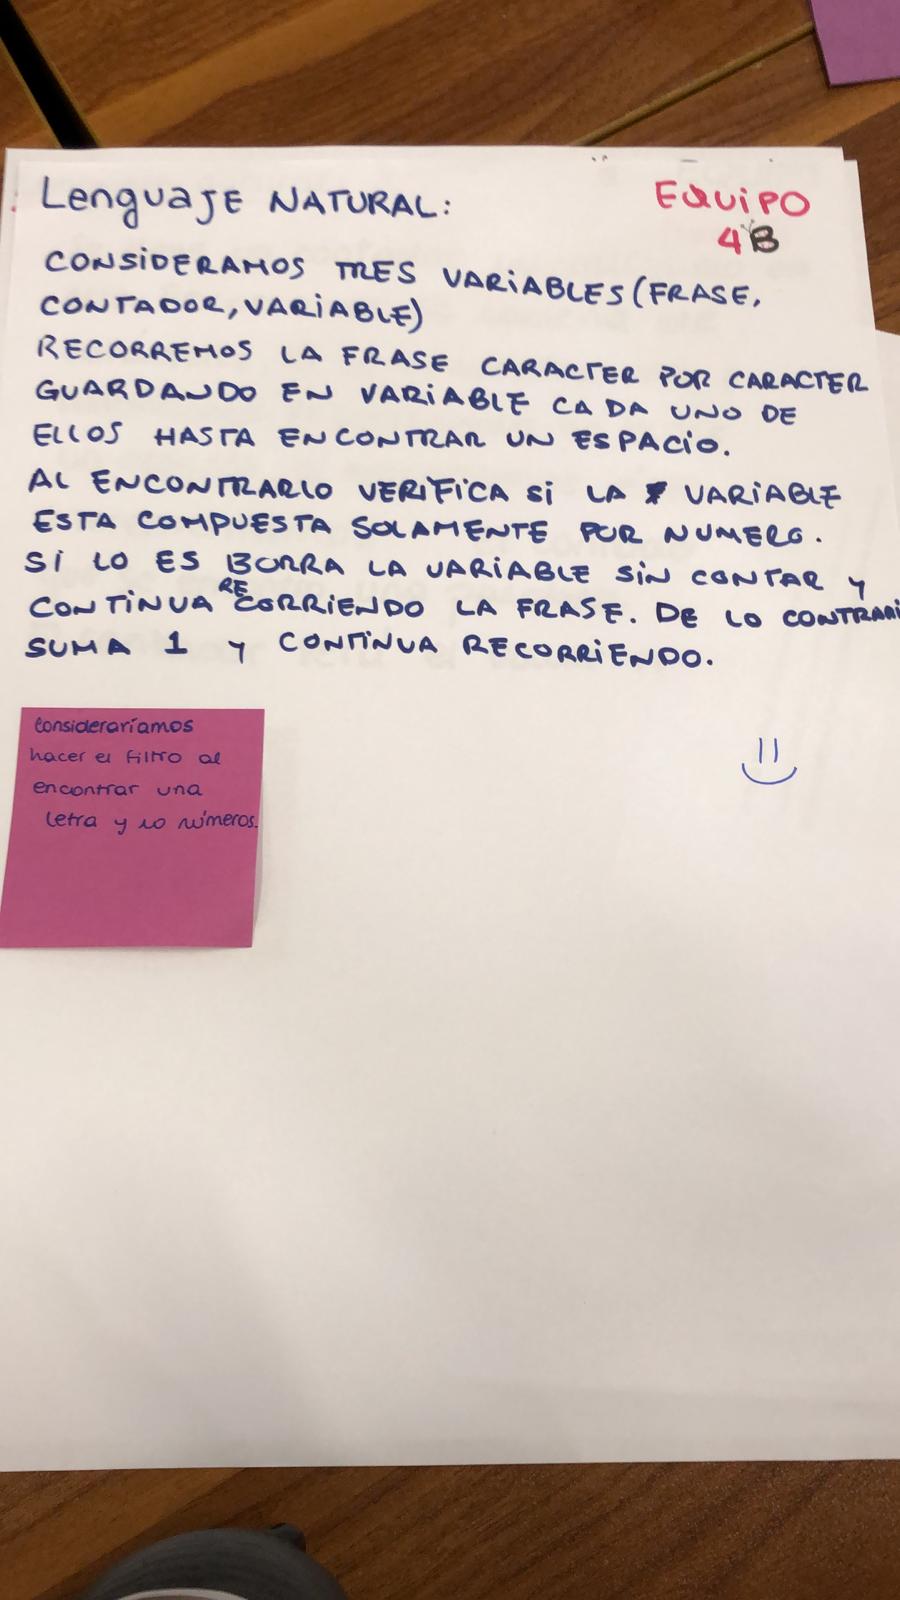 Lenguaje NATURAL:
EQUIPO
4B
CONSIDERAMOS TRES VARIABLES (FRASE,
CONTADOR, VARIABLE)
RECORREMOS LA FRASE CARACTER POR CARACTER
GUARDANDO EN VARIABLE CADA UNO DE
ELLOS HASTA ENCONTRAR UN ESPACIO.
AL ENCONTRARLO VERIFICA SI LA VARIABLE
ESTA COMPUESTA SOLAMENTE POR NUMERO.
SI LO ES BORRA LA VARIABLE SIN CONTAR Y
CONTINUA RECORRIENDO LA FRASE. DE LO CONTRARI
SUMA 1 Y CONTINUA RECORRIENDO.
Consideraríamos
hacer el filtro al
encontrar una
letra y no números.